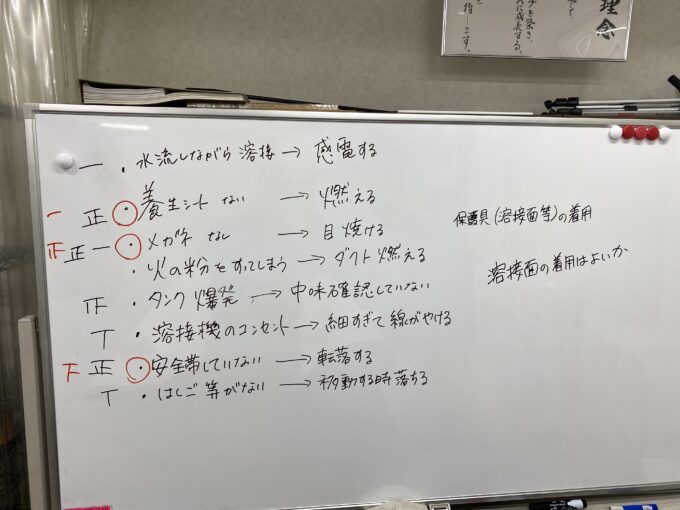 理念
一 ・水流しながら溶接 → 感電する
一 正 ・養生シート ない → 燃える
正 正一 ・メガネ なし → 目焼ける
・火の粉をすってしまう → ダクト燃える
正 ・タンク爆発 → 中味確認していない
T ・溶接機のコンセント → 細すぎて線がやける
下 正 ・安全帯していない → 転落する
T ・はしご等がない → 移動する時落ちる
保護具(溶接面等)の着用
溶接面の着用はよいか